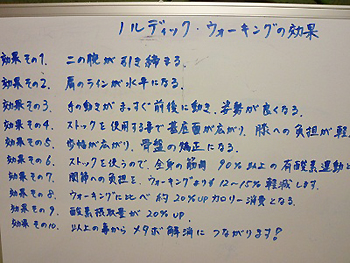 ノルディック・ウォーキングの効果
効果その1. 二の腕が引き締まる.
効果その2. 肩のラインが水平になる.
効果その3. 手の動きがまっすぐ前後に動き、姿勢が良くなる.
効果その4. ストックを使用する事で基底面が広がり、膝への負担が軽
効果その5. 歩幅が広がり、骨盤の矯正になる.
効果その6. ストックを使うので、全身の筋肉 90%以上の有酸素運動と
効果その7. 関節への負担を、ウォーキングよりも12〜15%軽減します.
効果その8. ウォーキングに比べ約20%UPカロリー消費となる.
効果その9. 酸素摂取量が20%UP.
効果その10. 以上の事からメタボ解消につながります!